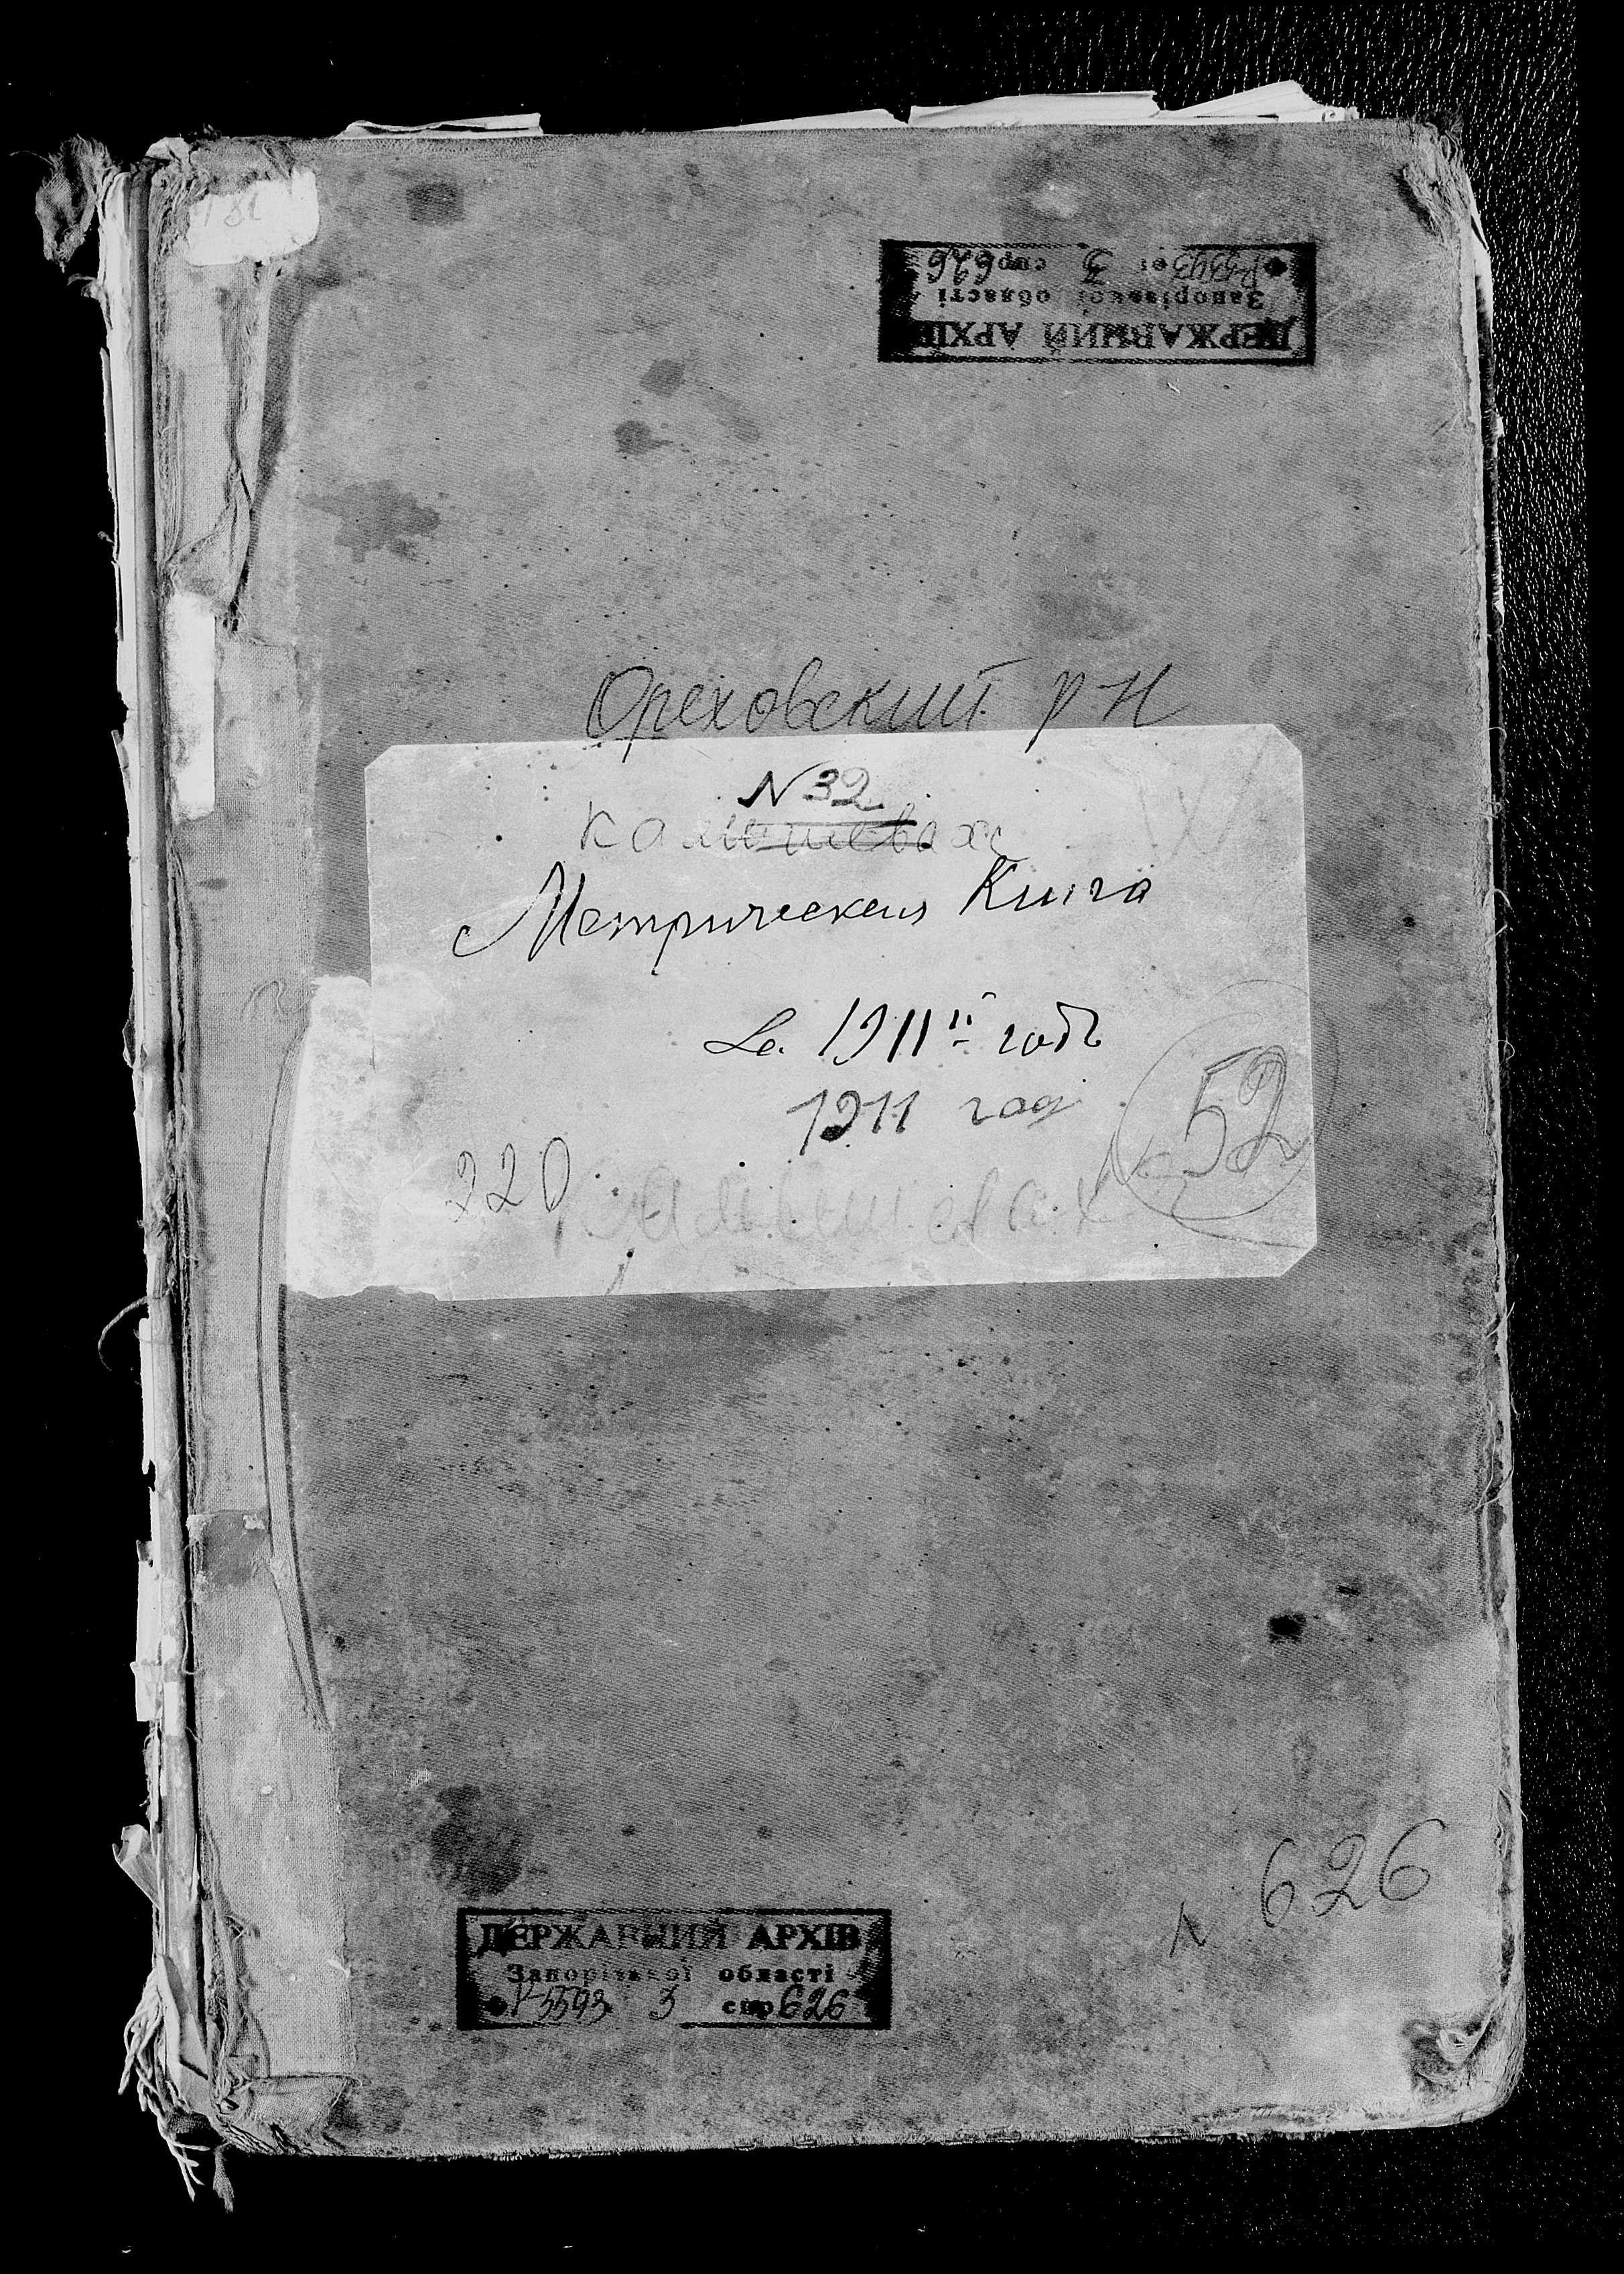 ДЕРЖАВНИЙ АРХІВ
Запорізької області
Р-5593 оп 3 спр 626
Ореховский р-н
N 32
Камышеваха
Метрическая Книга
за 1911й годъ
1911 год
52
220
Камышевах
N 626
ДЕРЖАВНИЙ АРХІВ
Запорізької області
Р-5593 3 спр 626